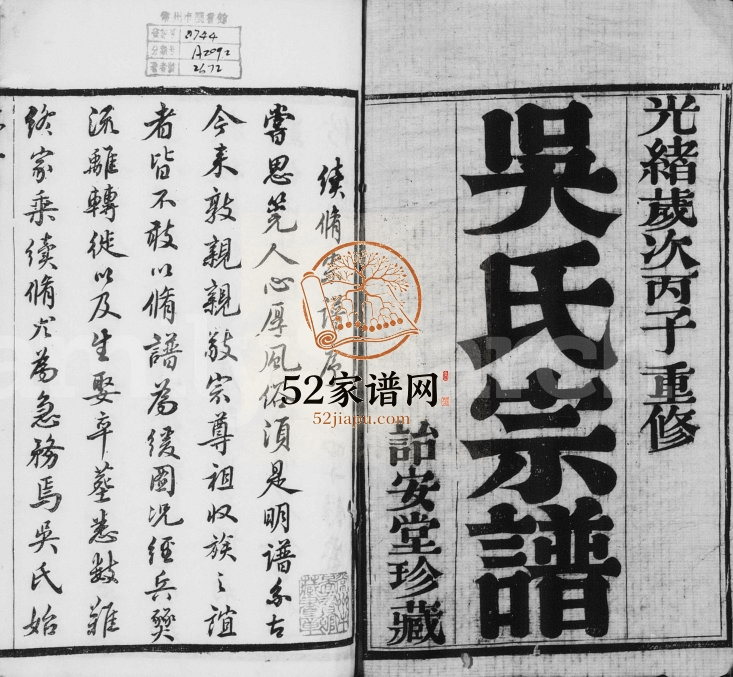 光緒歲次丙子重修
吳氏宗譜
詒安堂珍藏
續脩宗譜序
嘗思筦人心厚風俗須是明譜系古
今来敦親親敬宗尊祖收族之誼
者皆不敢以脩譜為緩圖况經兵燹
流離轉徙以及生娶卒塟悉數難
終家乘續脩尤為急務焉吳氏始
8744
A2092
2672
52家谱网
52jiapu.com